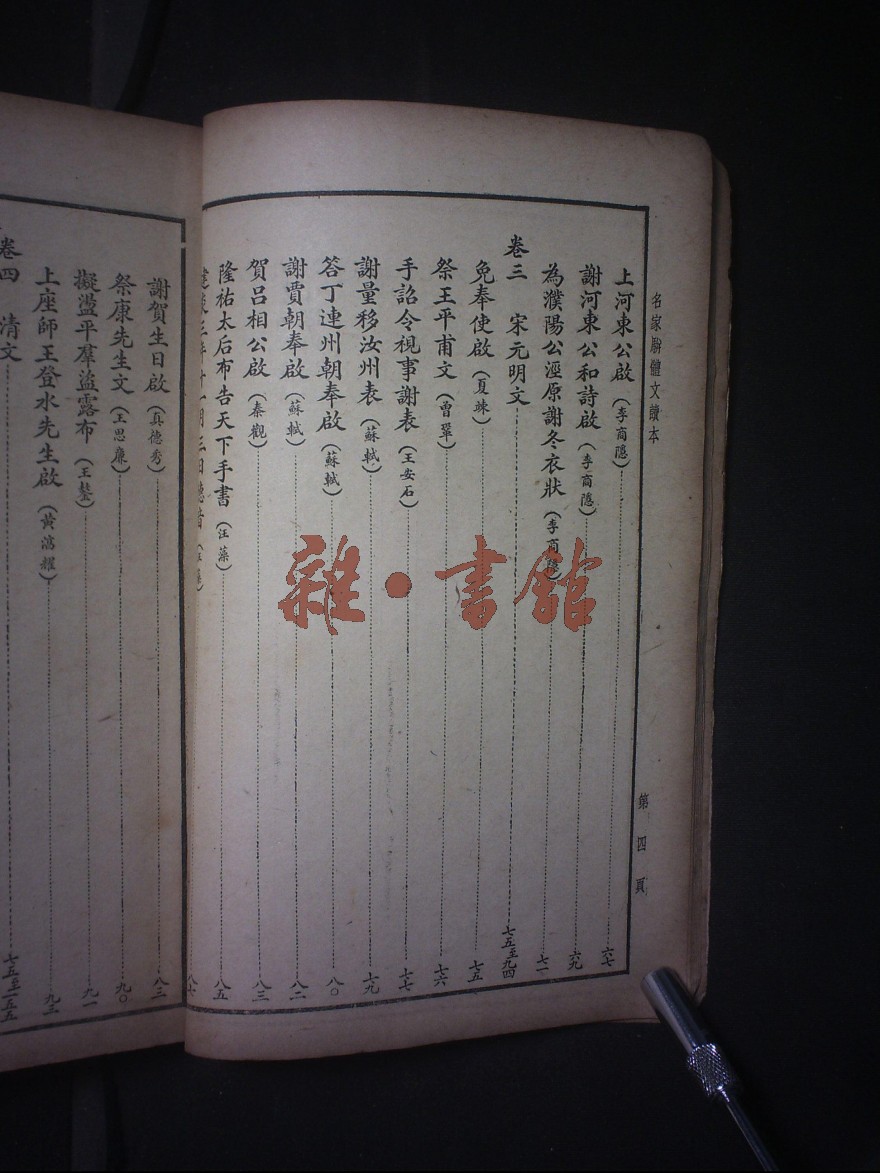 名家駢體文讀本
第四頁
上河東公啟(李商隱)六七
謝河東公和詩啟(李商隱)六九
為濮陽公涇原謝冬衣狀(李商隱)七一
卷三 宋元明文七五至九四
免奉使啟(夏竦)七五
祭王平甫文(曾鞏)七六
手詔令視事謝表(王安石)七七
謝量移汝州表(蘇軾)七九
答丁連州朝奉啟(蘇軾)八〇
謝賈朝奉啟(蘇軾)八二
賀呂相公啟(秦觀)八三
隆祐太后布告天下手書(汪藻)八五
建炎三年十一月三日德音(汪藻)八七
謝賀生日啟(真德秀)八三
祭康先生文(王思廉)九〇
擬盪平羣盜露布(王鏊)九一
上座師王登水先生啟(黃淳耀)九三
卷四 清文
雜·書館